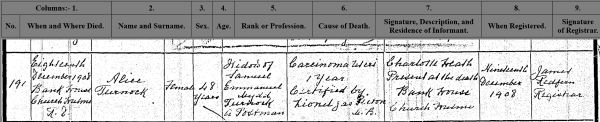 Columns:- 1. 2. 3. 4. 5. 6. 7. 8. 9.
No. When and Where Died. Name and Surname. Sex. Age. Rank or Profession. Cause of Death. Signature, Description, and Residence of Informant. When Registered. Signature of Registrar.
191
Eighteenth
December 1908
Bank House
Church Hulme
Alice
Turnock
Female
48
Years
Widow of
Samuel
Emmanuel
Turnock
a Postman
Carcinoma Uteri
1 Year
Certified by
Lionel Jas Picton
M.B.
Charlotte Heath
Present at the death
Bank House
Church Hulme
Nineteenth
December
1908
James
Redfern
Registrar